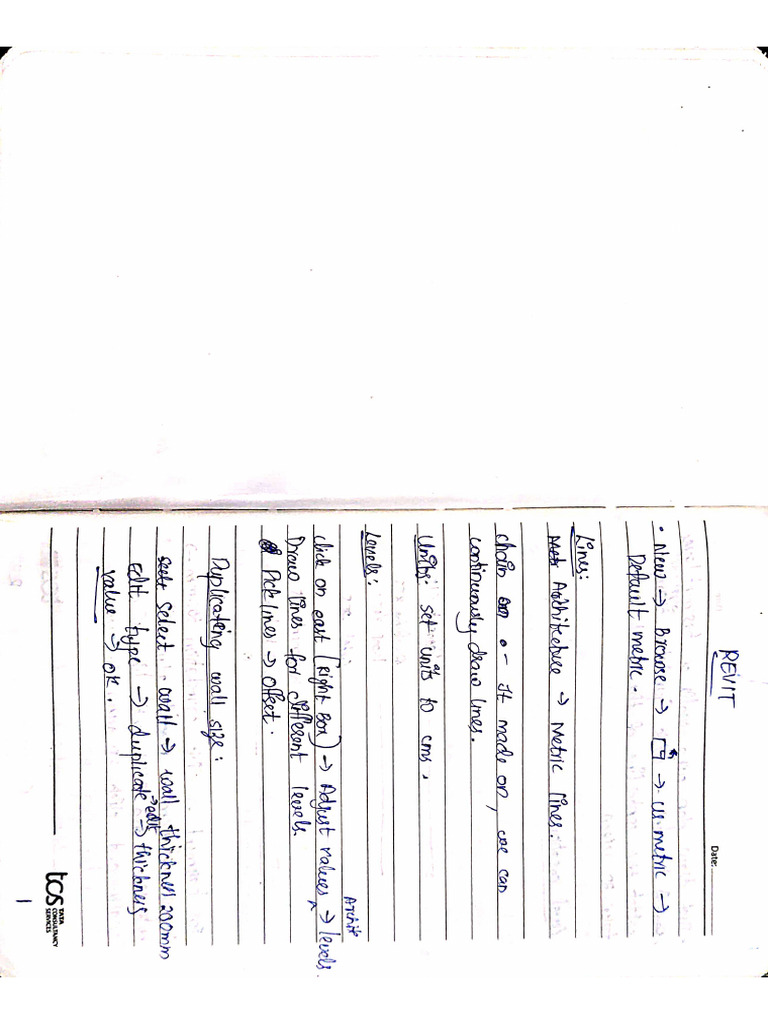 Date:
REVIT
• New → Browse → → US metric →
Default metric.
Lines:
Architecture → Metric lines.
chain on :- If made on, we can
continuously draw lines.
Units: set units to cms.
Levels:
Archit
click on east (Right Box) → Adjust values → levels.
Draw lines for different levels.
Pick lines → offset.
Duplicating wall size:
Select wall → wall thickness 200mm
Edit type → duplicate → edit → thickness
value → ok.
tcs TATA
CONSULTANCY
SERVICES
1